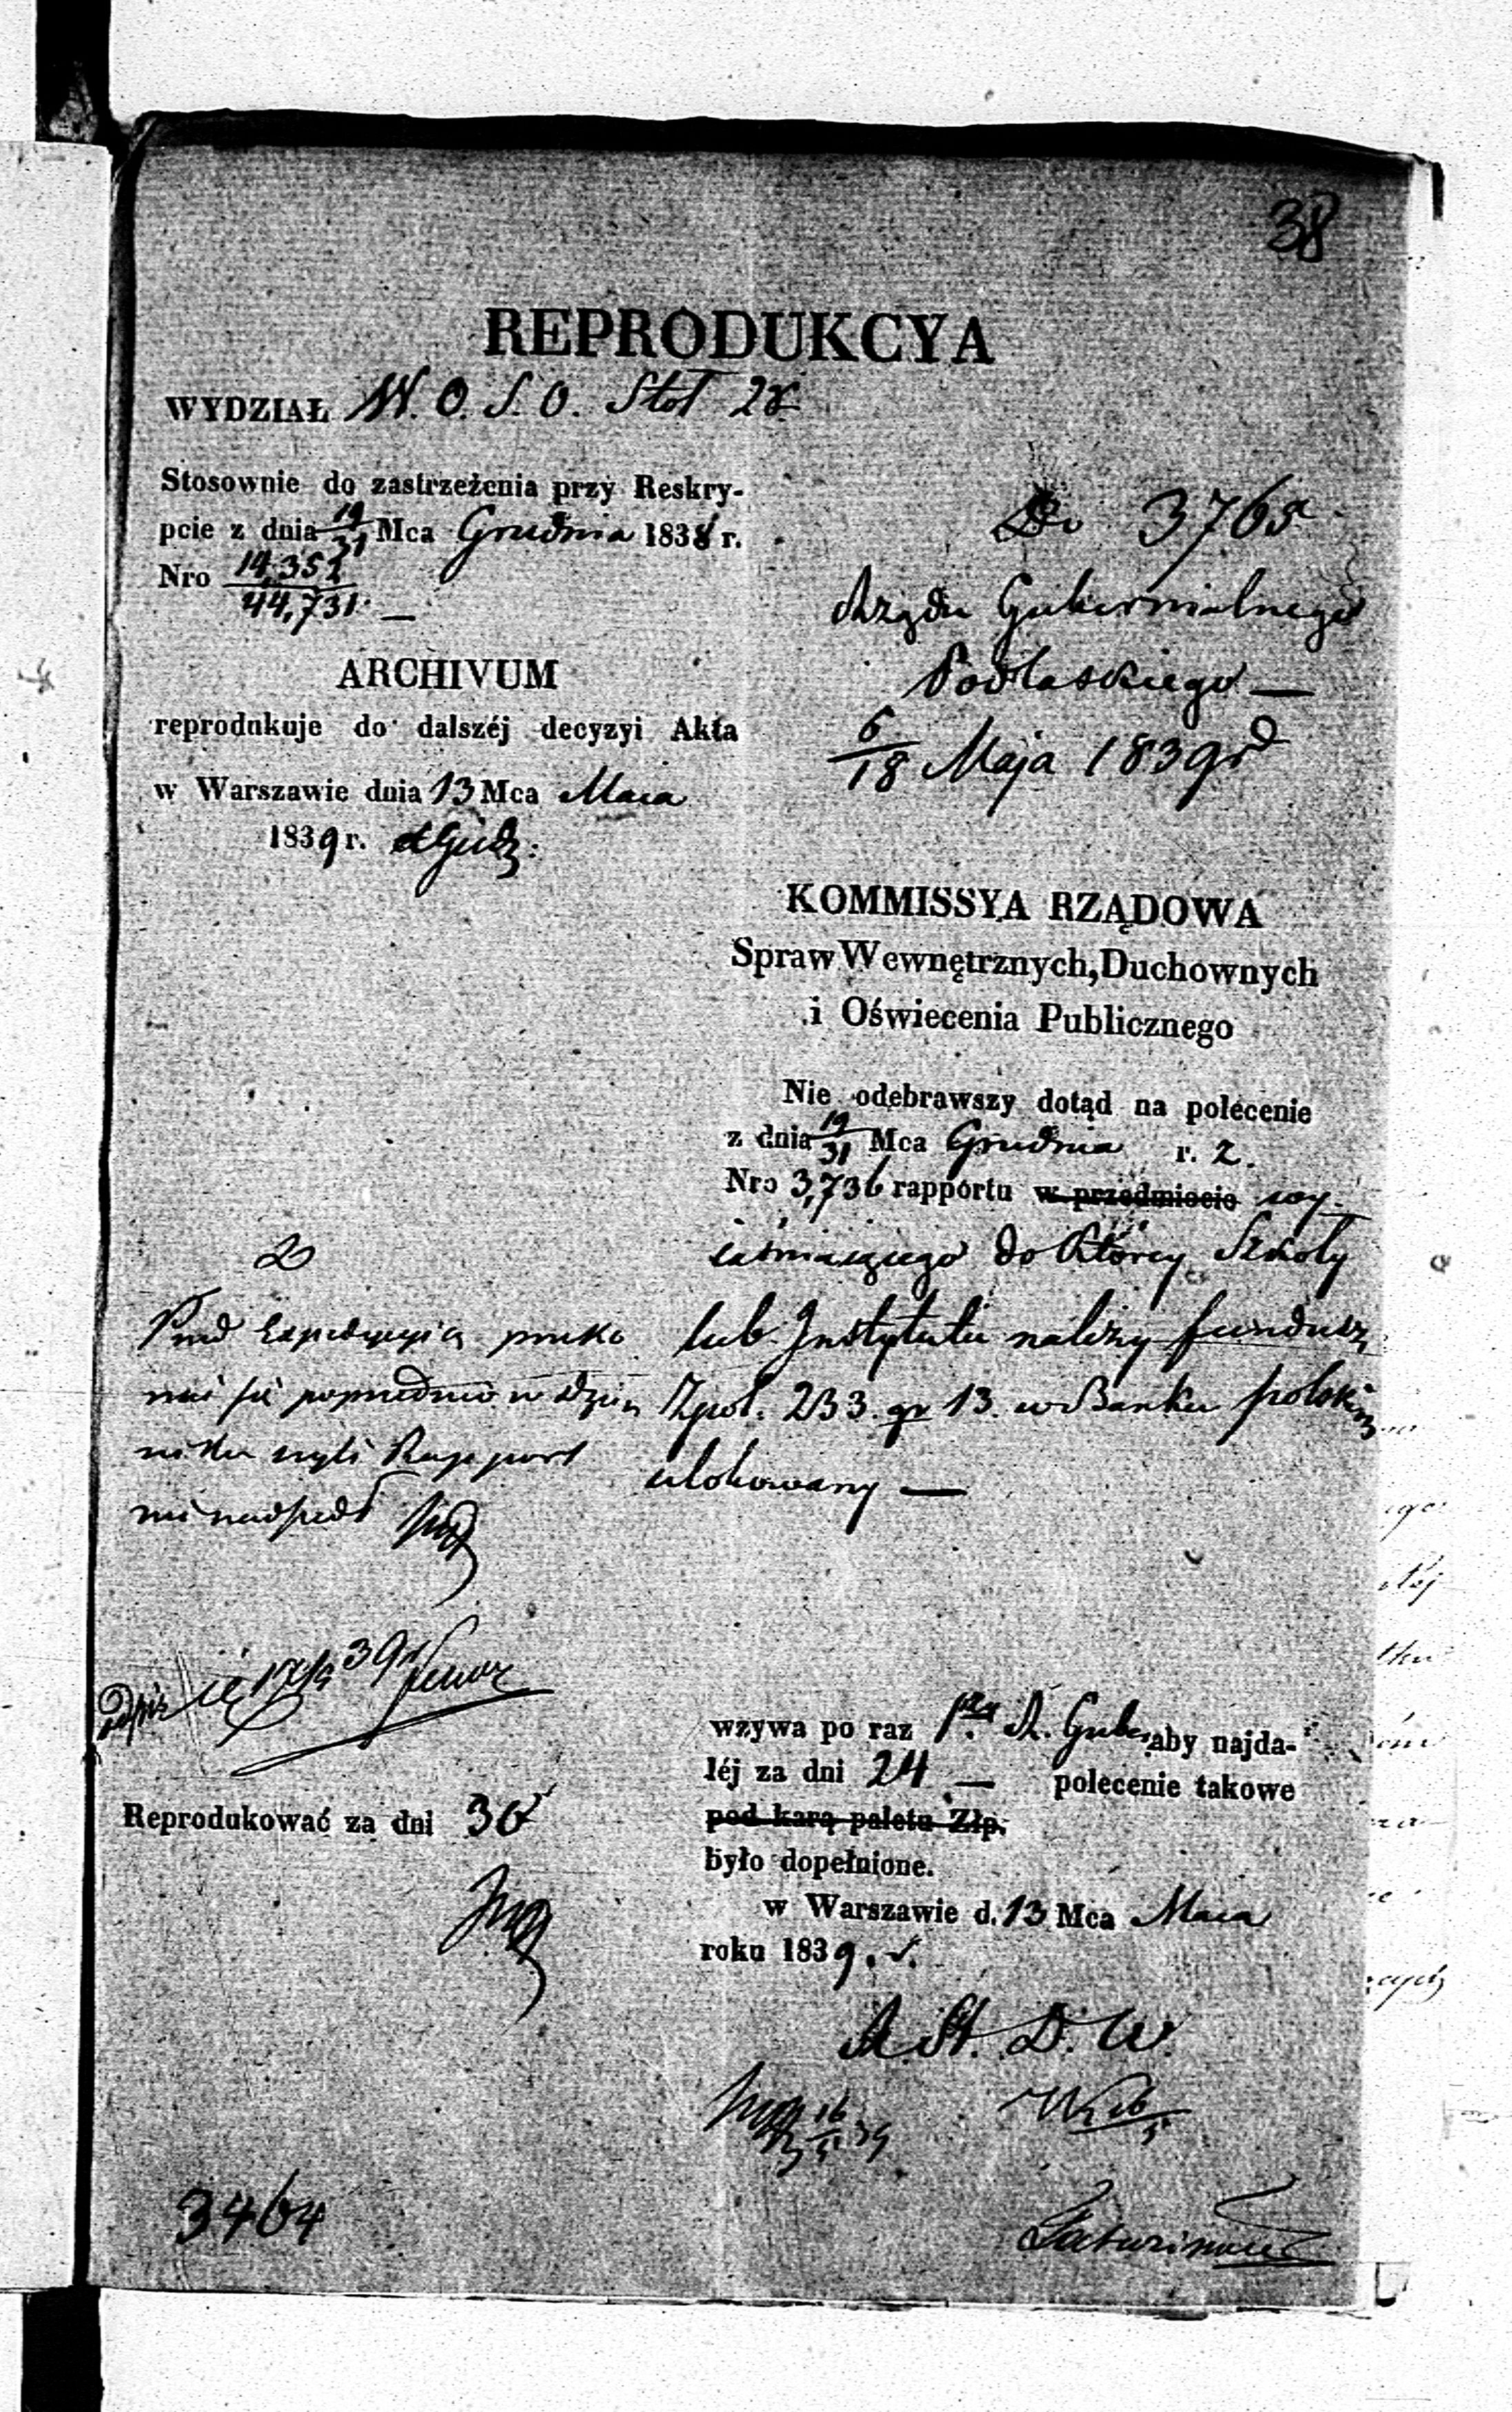 38
REPRODUKCYA
WYDZIAŁ W. O. S. O. Stoł 2
Stosownie do zastrzeżenia przy Reskry-
pcie z dnia 19/31 Mca Grudnia 1838 r.
Nro 14,352/44,731. —
ARCHIVUM
reprodukuje do dalszéj decyzyi Akta
w Warszawie dnia 13 Mca Maia
1839 r.
Do 3765
Rządu Gubernialnego
Podlaskiego —
6/18 Maja 1839 r
KOMMISSYA RZĄDOWA
Spraw Wewnętrznych, Duchownych
i Oświecenia Publicznego
Nie odebrawszy dotąd na polecenie
z dnia 19/31 Mca Grudnia r. z.
Nro 3,736 rapportu w przedmiocie wy-
iaśniaiącego do którey Szkoły
lub Instytutu należy fundusz
Zpol. 233. gr 13. w Banku polskim
ulokowany —
Przed Expedycyią
się poprzednio w dzien
niku czyli Rapport
nie nadszedł
Reprodukować za dni 30
wzywa po raz 1szy R. Guber. aby najda-
léj za dni 24 — polecenie takowe
pod karą paletu Złp.
było dopełnione.
w Warszawie d. 13 Mca Maia
roku 1839. r.
R. St. D. W.
16/5 39
3464